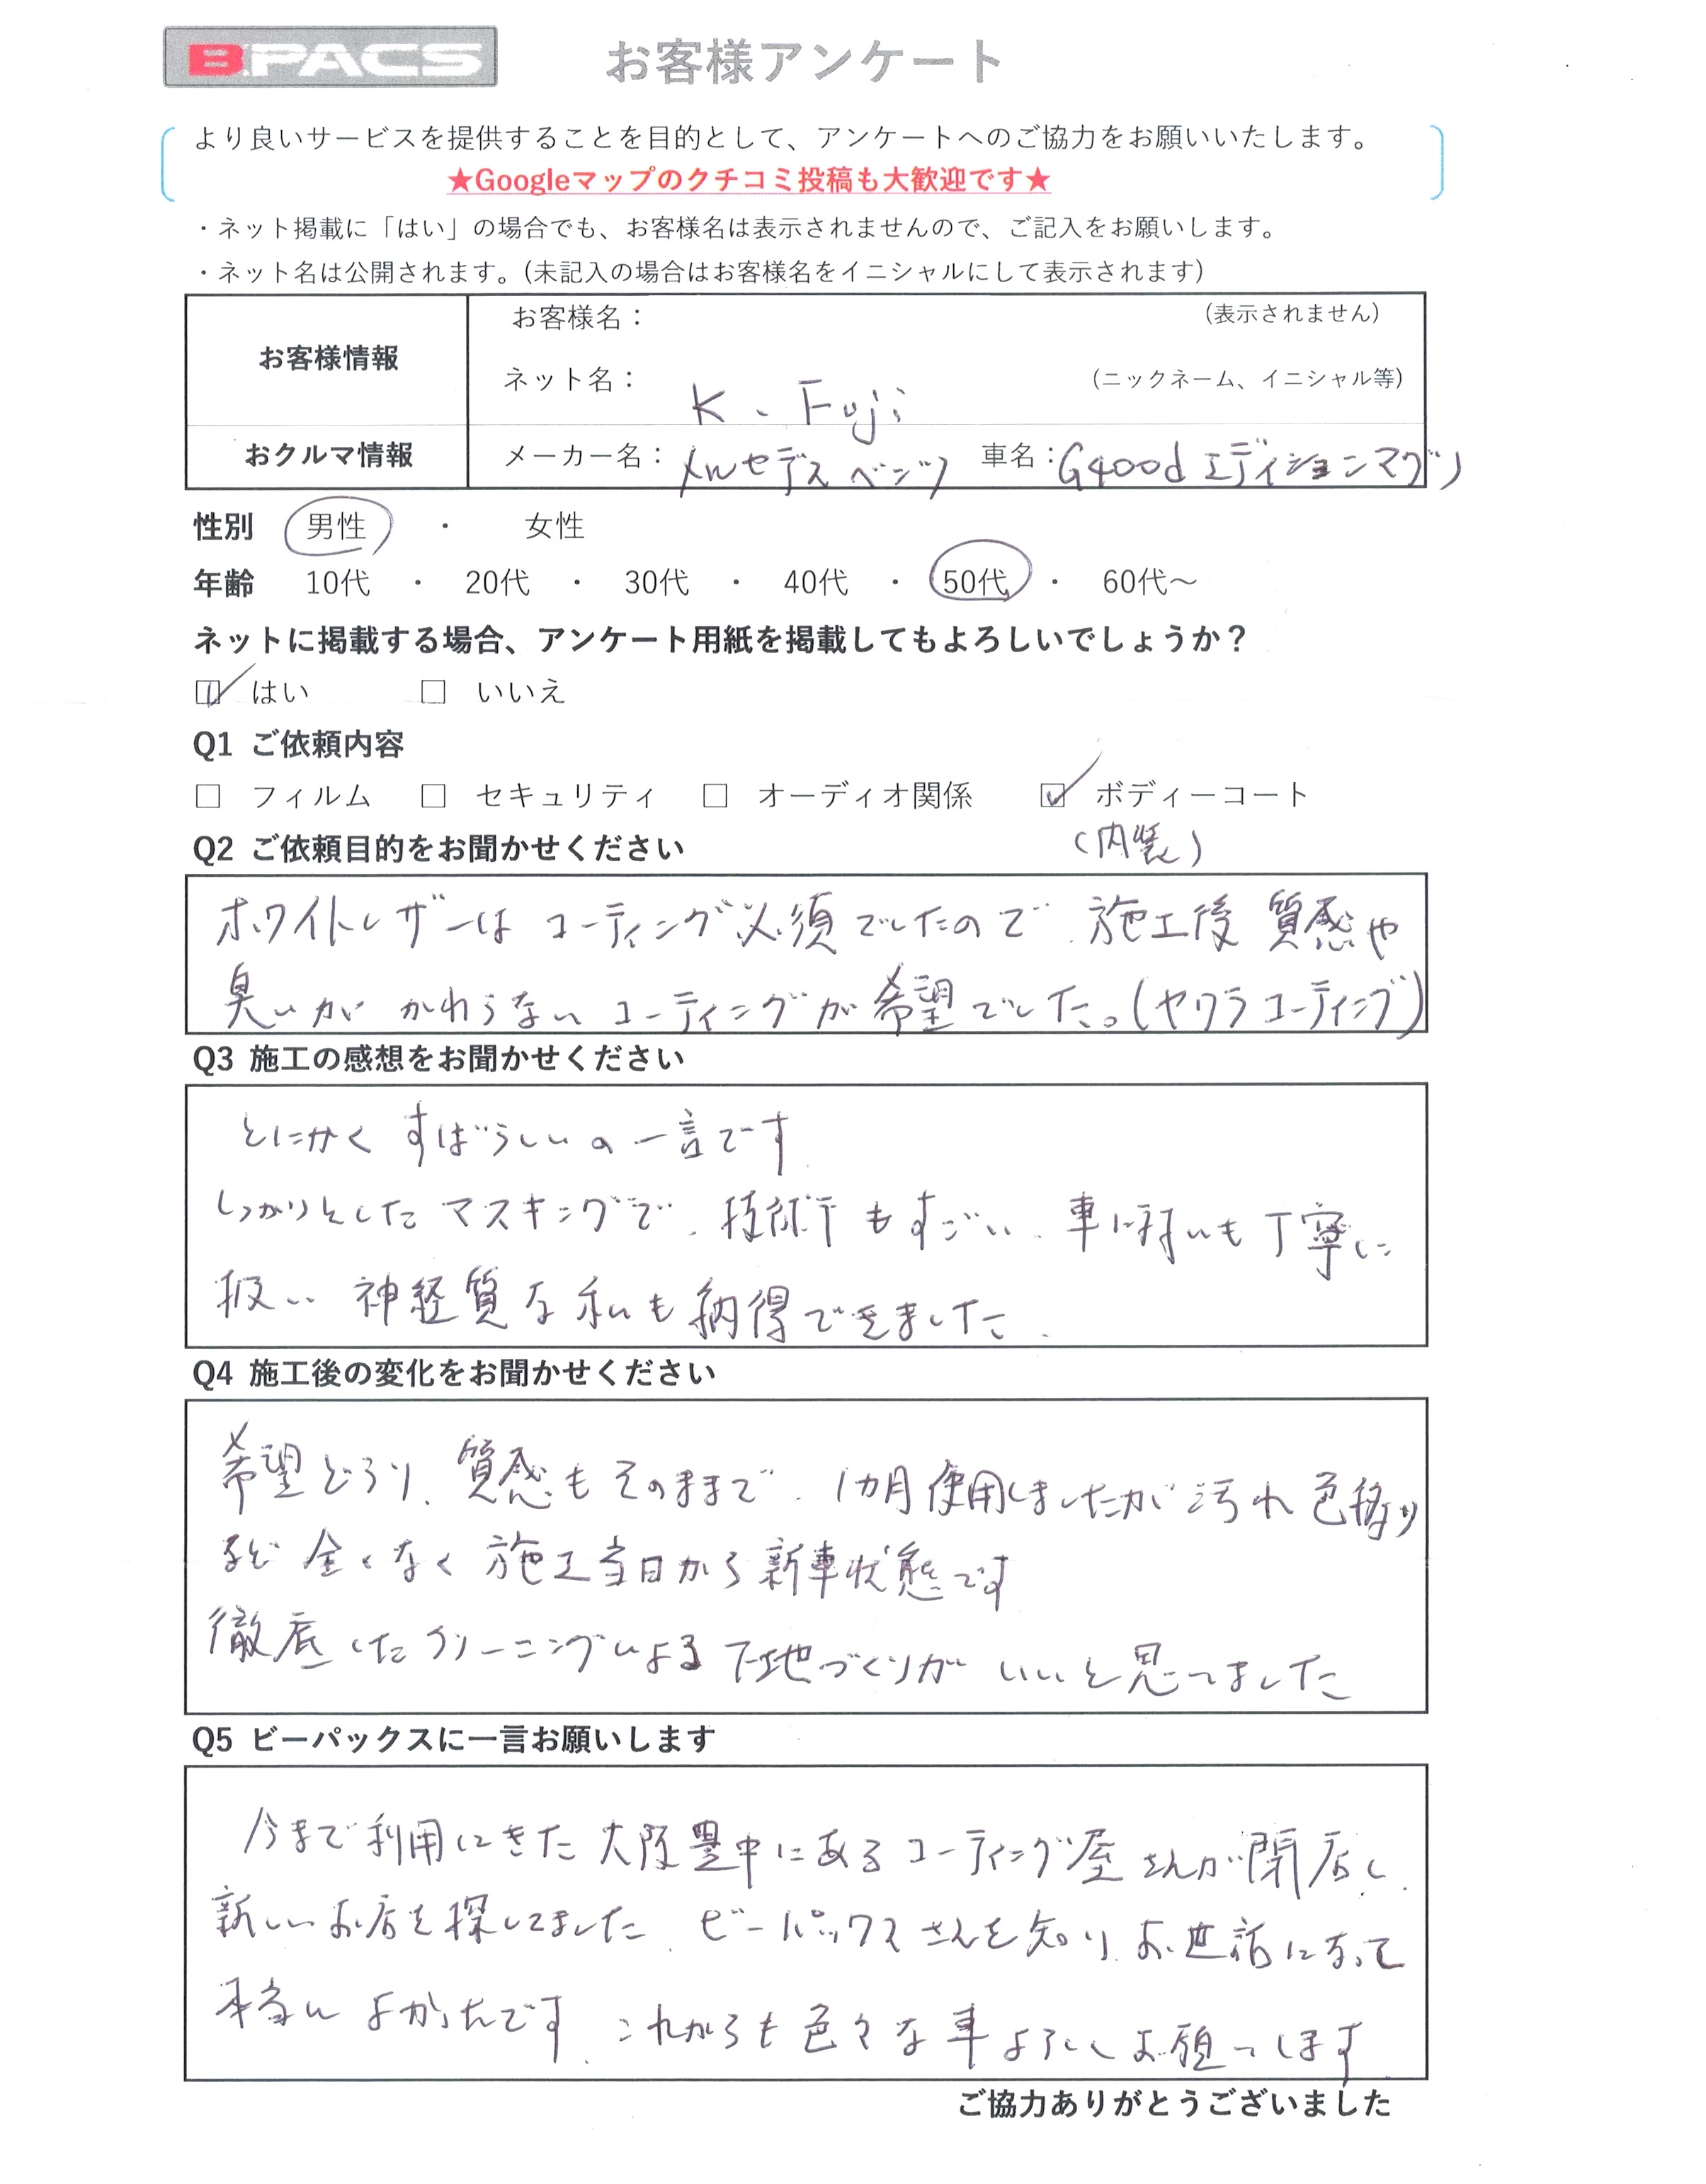 B.PACS お客様アンケート
より良いサービスを提供することを目的として、アンケートへのご協力をお願いいたします。
★Googleマップのクチコミ投稿も大歓迎です★
・ネット掲載に「はい」の場合でも、お客様名は表示されませんので、ご記入をお願いします。
・ネット名は公開されます。(未記入の場合はお客様名をイニシャルにして表示されます)
お客様情報
お客様名： (表示されません)
ネット名： K. Fuji (ニックネーム、イニシャル等)
おクルマ情報 メーカー名：メルセデスベンツ 車名：G400d エディションマグノ
性別 男性 ・ 女性
年齢 10代 ・ 20代 ・ 30代 ・ 40代 ・ 50代 ・ 60代～
ネットに掲載する場合、アンケート用紙を掲載してもよろしいでしょうか？
☑ はい □ いいえ
Q1 ご依頼内容
□ フィルム □ セキュリティ □ オーディオ関係 ☑ ボディーコート
(内装)
Q2 ご依頼目的をお聞かせください
ホワイトレザーはコーティング必須でしたので、施工後 質感や
臭いが かわらないコーティングが希望でした。(ヤワラコーティング)
Q3 施工の感想をお聞かせください
とにかく すばらしいの一言です
しっかりとしたマスキングで、技術もすごい、車に対しても丁寧に
扱い 神経質な私も納得できました。
Q4 施工後の変化をお聞かせください
希望どうり、質感もそのままで、1カ月使用しましたが汚れ色移り
など全くなく 施工当日から新車状態です
徹底したクリーニングによる下地づくりが いいと思ってました
Q5 ビーパックスに一言お願いします
今まで利用してきた大阪豊中にあるコーティング屋さんが閉店し、
新しいお店を探してました、ビーパックスさんを知り、お世話になって
本当に よかったです。これからも色々な車よろしくお願いします
ご協力ありがとうございました